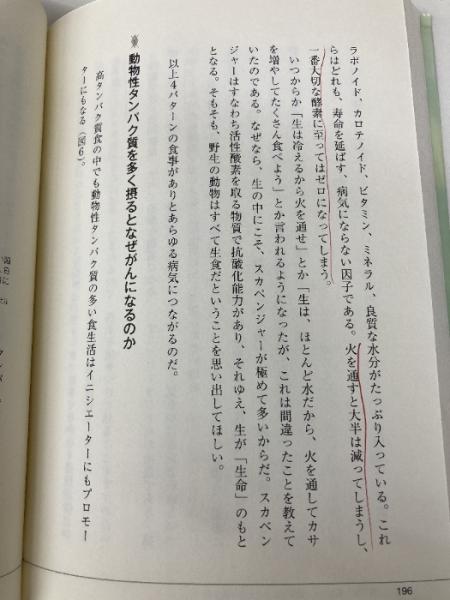 ラボノイド、カロテノイド、ビタミン、ミネラル、良質な水分がたっぷり入っている。これ
らはどれも、寿命を延ばす、病気にならない因子である。火を通すと大半は減ってしまうし、
一番大切な酵素に至ってはゼロになってしまう。
いつからか「生は冷えるから火を通せ」とか「生は、ほとんど水だから、火を通してカサ
を増やしてたくさん食べよう」とか言われるようになったが、これは間違ったことを教えて
いたのである。なぜなら、生の中にこそ、スカベンジャーが極めて多いからだ。スカベン
ジャーはすなわち活性酸素を取る物質で抗酸化能力があり、それゆえ、生が「生命」のもと
となる。そもそも、野生の動物はすべて生食だということを思い出してほしい。
以上4パターンの食事がありとあらゆる病気につながるのだ。
動物性タンパク質を多く摂るとなぜがんになるのか
高タンパク質食の中でも動物性タンパク質の多い食生活はイニシエーターにもプロモー
ターにもなる（図6）。
196